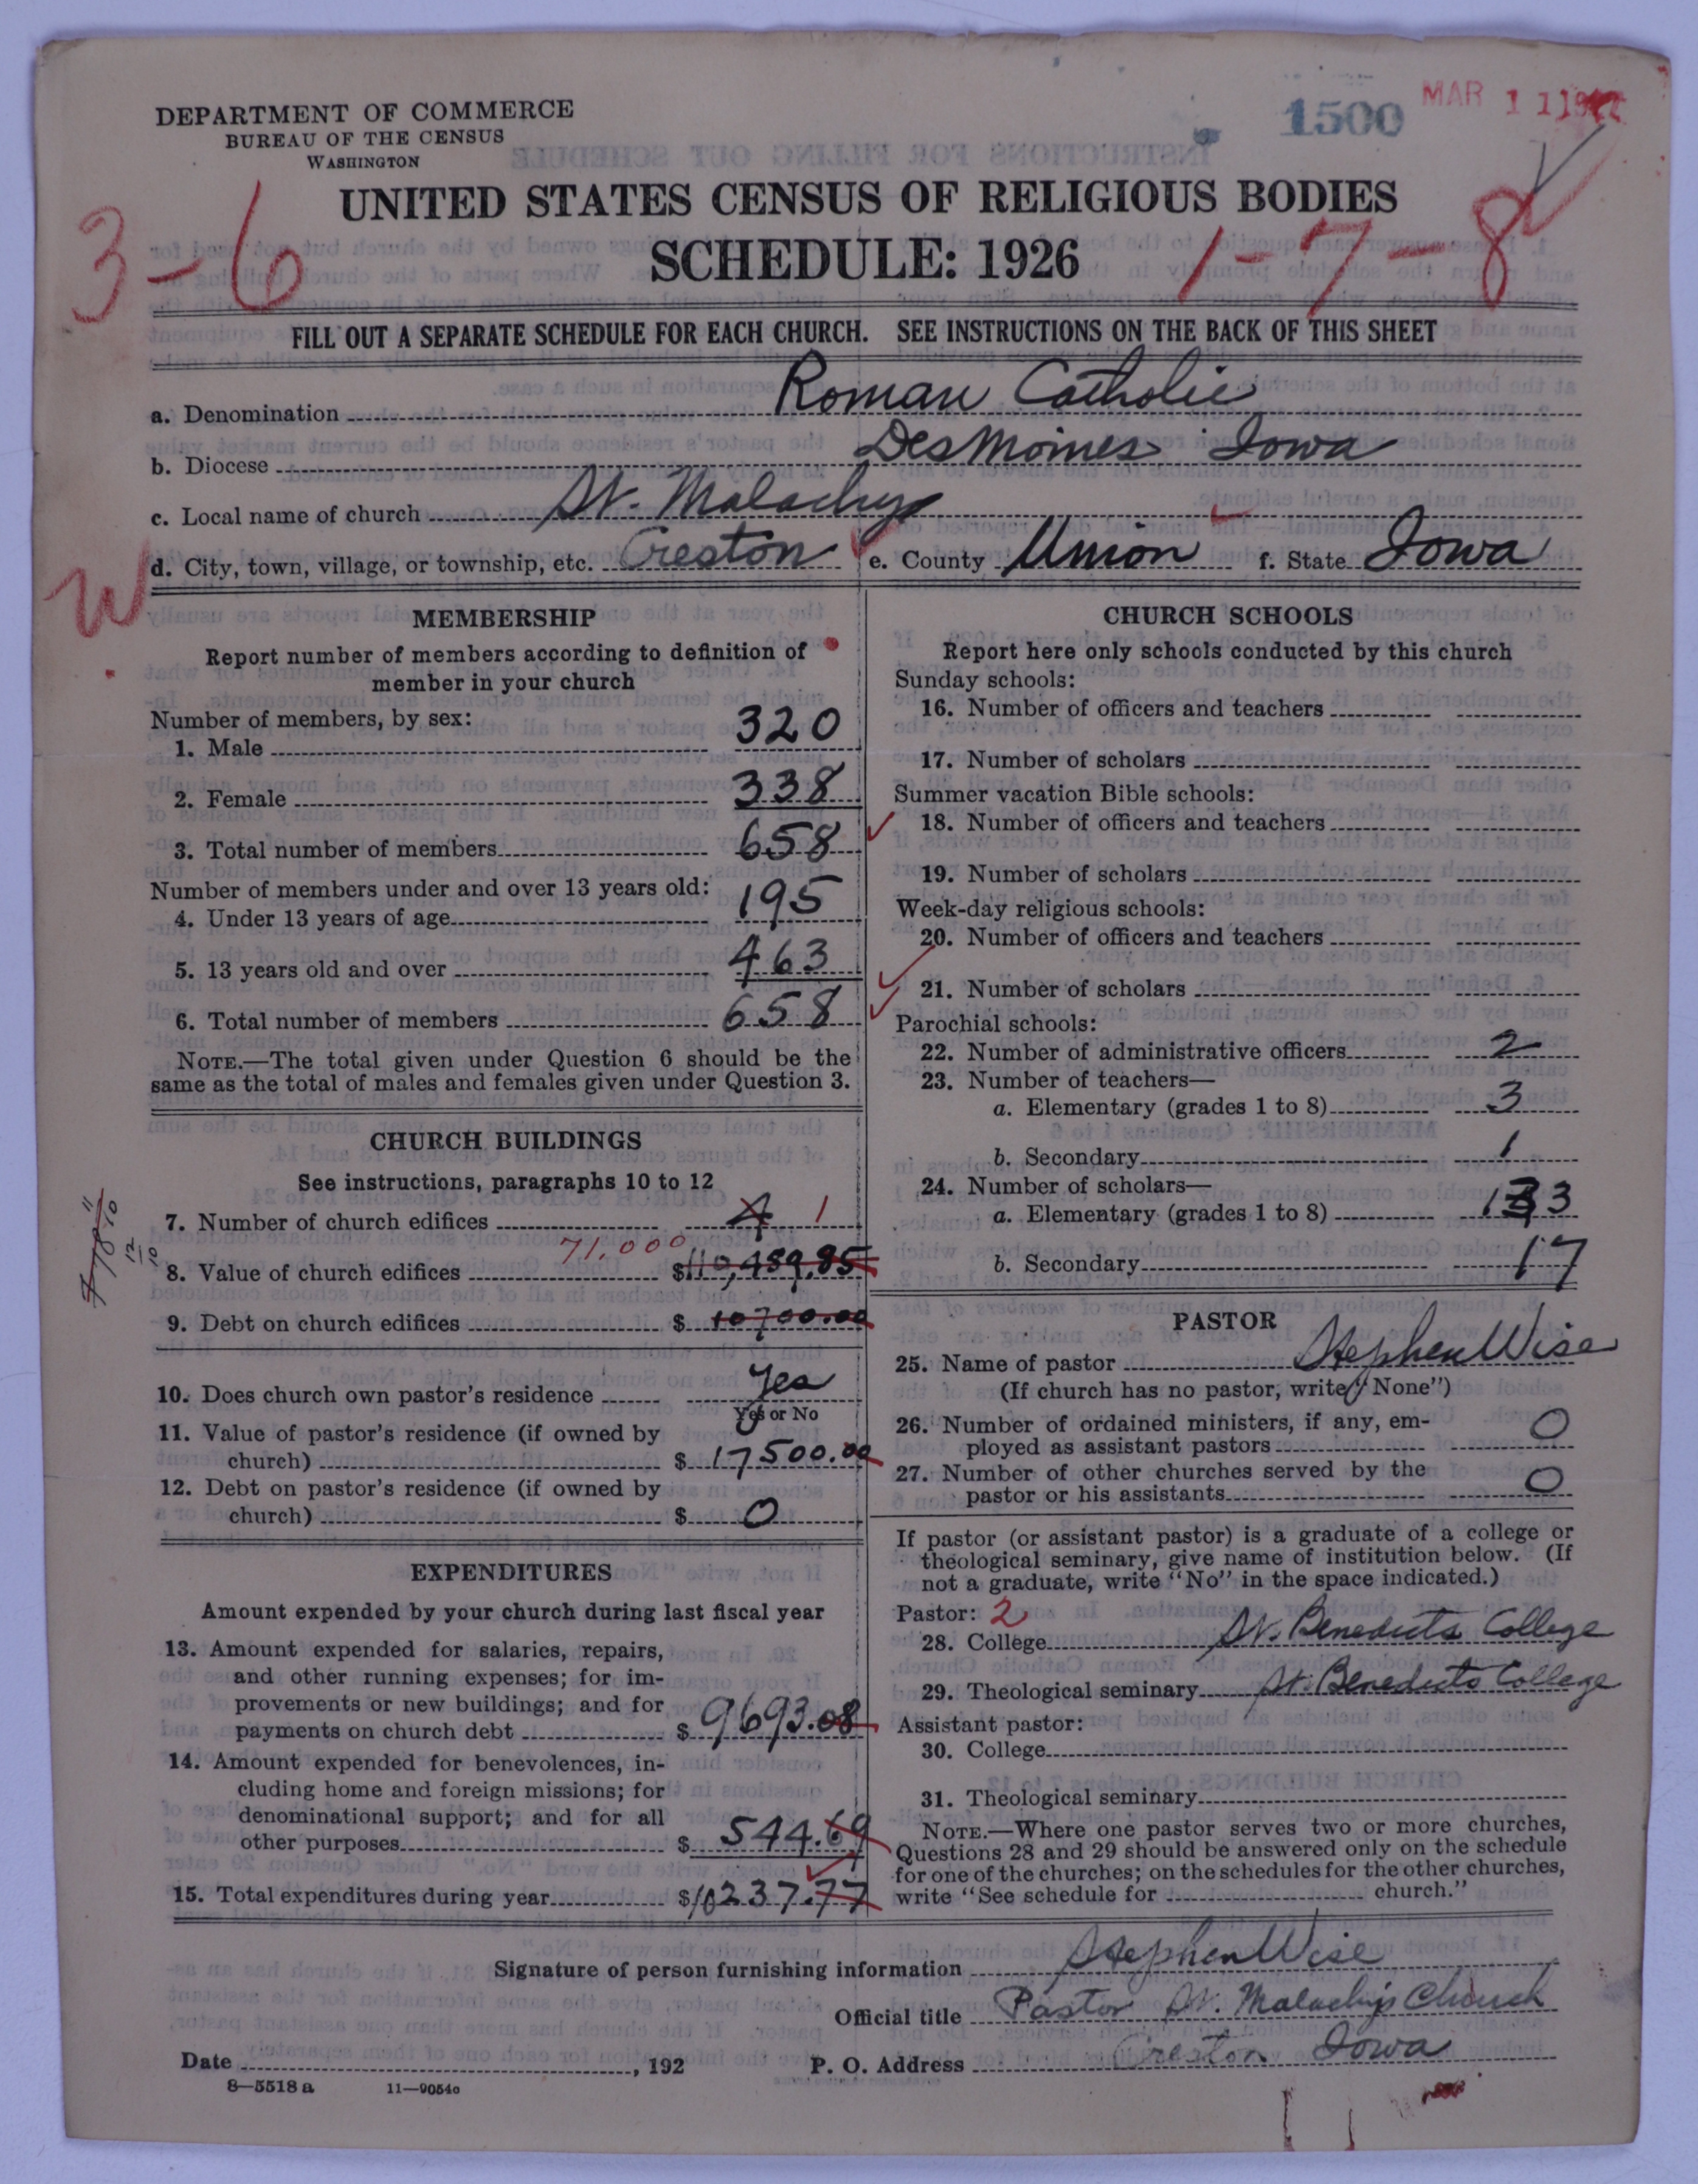 DEPARTMENT OF COMMERCE
BUREAU OF THE CENSUS
WASHINGTON
1500
MAR 11
UNITED STATES CENSUS OF RELIGIOUS BODIES
SCHEDULE: 1926
3-6
1-7-8
FILL OUT A SEPARATE SCHEDULE FOR EACH CHURCH. SEE INSTRUCTIONS ON THE BACK OF THIS SHEET
a. Denomination Roman Catholic
b. Diocese Des Moines Iowa
c. Local name of church St. Malachy
d. City, town, village, or township, etc. Creston e. County Union f. State Iowa
W
MEMBERSHIP
Report number of members according to definition of
member in your church
Number of members, by sex:
1. Male 320
2. Female 338
3. Total number of members 658
Number of members under and over 13 years old:
4. Under 13 years of age 195
5. 13 years old and over 463
6. Total number of members 658
NOTE.—The total given under Question 6 should be the
same as the total of males and females given under Question 3.
CHURCH BUILDINGS
See instructions, paragraphs 10 to 12
7. Number of church edifices 4 1
71,000
8. Value of church edifices $110,489.85
9. Debt on church edifices $10700.00
10. Does church own pastor's residence Yes
Yes or No
11. Value of pastor's residence (if owned by
church) $17500.00
12. Debt on pastor's residence (if owned by
church) $0
EXPENDITURES
Amount expended by your church during last fiscal year
13. Amount expended for salaries, repairs,
and other running expenses; for im-
provements or new buildings; and for
payments on church debt $9693.08
14. Amount expended for benevolences, in-
cluding home and foreign missions; for
denominational support; and for all
other purposes $544.69
15. Total expenditures during year $10237.77
CHURCH SCHOOLS
Report here only schools conducted by this church
Sunday schools:
16. Number of officers and teachers
17. Number of scholars
Summer vacation Bible schools:
18. Number of officers and teachers
19. Number of scholars
Week-day religious schools:
20. Number of officers and teachers
21. Number of scholars
Parochial schools:
22. Number of administrative officers 2
23. Number of teachers—
a. Elementary (grades 1 to 8) 3
b. Secondary 1
24. Number of scholars—
a. Elementary (grades 1 to 8) 133
b. Secondary 17
PASTOR
25. Name of pastor Stephen Wise
(If church has no pastor, write "None")
26. Number of ordained ministers, if any, em-
ployed as assistant pastors 0
27. Number of other churches served by the
pastor or his assistants 0
If pastor (or assistant pastor) is a graduate of a college or
theological seminary, give name of institution below. (If
not a graduate, write "No" in the space indicated.)
Pastor: 2
28. College St. Benedicts College
29. Theological seminary St. Benedicts College
Assistant pastor:
30. College
31. Theological seminary
NOTE.—Where one pastor serves two or more churches,
Questions 28 and 29 should be answered only on the schedule
for one of the churches; on the schedules for the other churches,
write "See schedule for church."
Signature of person furnishing information Stephen Wise
Official title Pastor St. Malachy's Church
Date , 192 P. O. Address Creston Iowa
8—5518 a 11—9054c